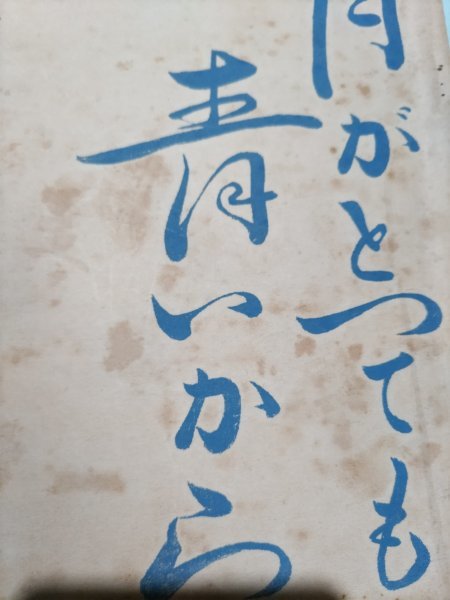 月がとつても
青いから